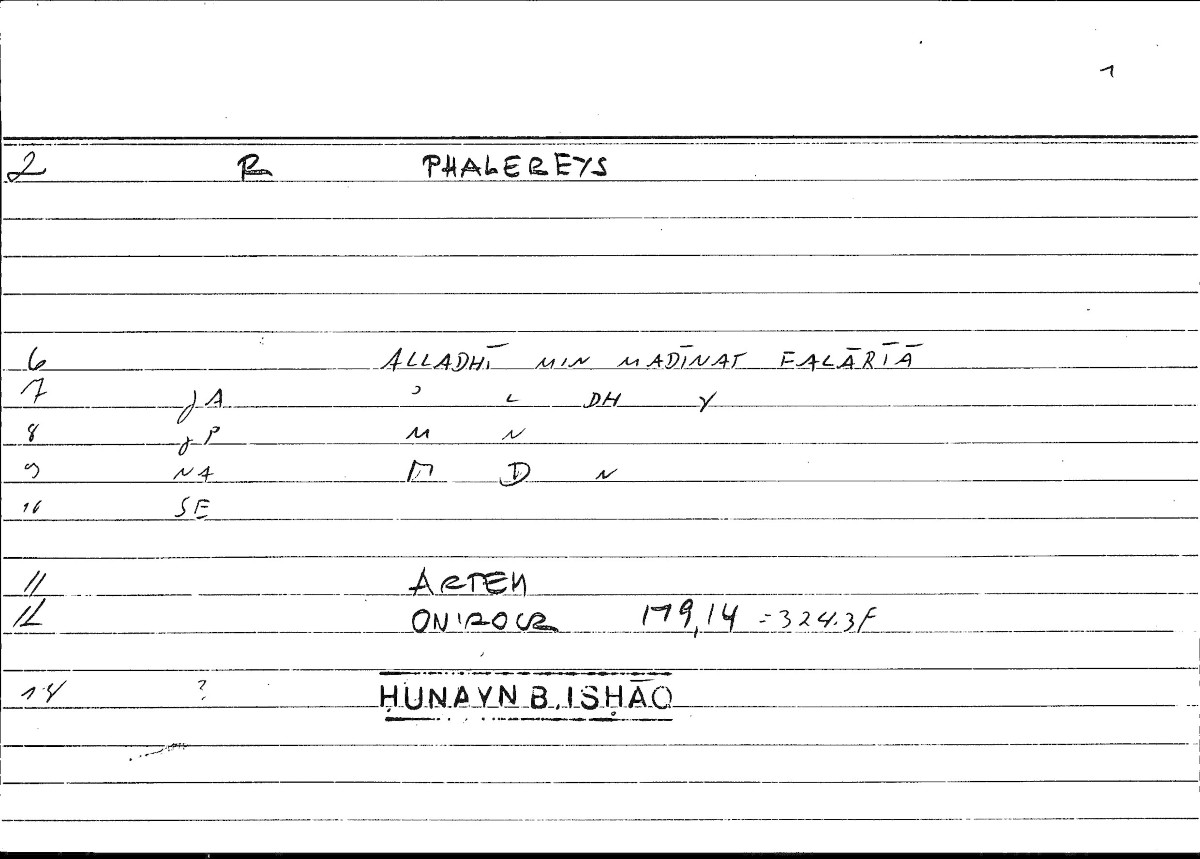 1
2 R PHALEREYS
6 ALLADHĪ MIN MADĪNAT FALĀRĪĀ
7 jA ʾ L DH Y
8 jP M N
9 NA M D N
10 SE
11 ARTEM
12 ONIROCR 179,14 = 324.3F
14 ? ḤUNAYN B. ISḤĀQ